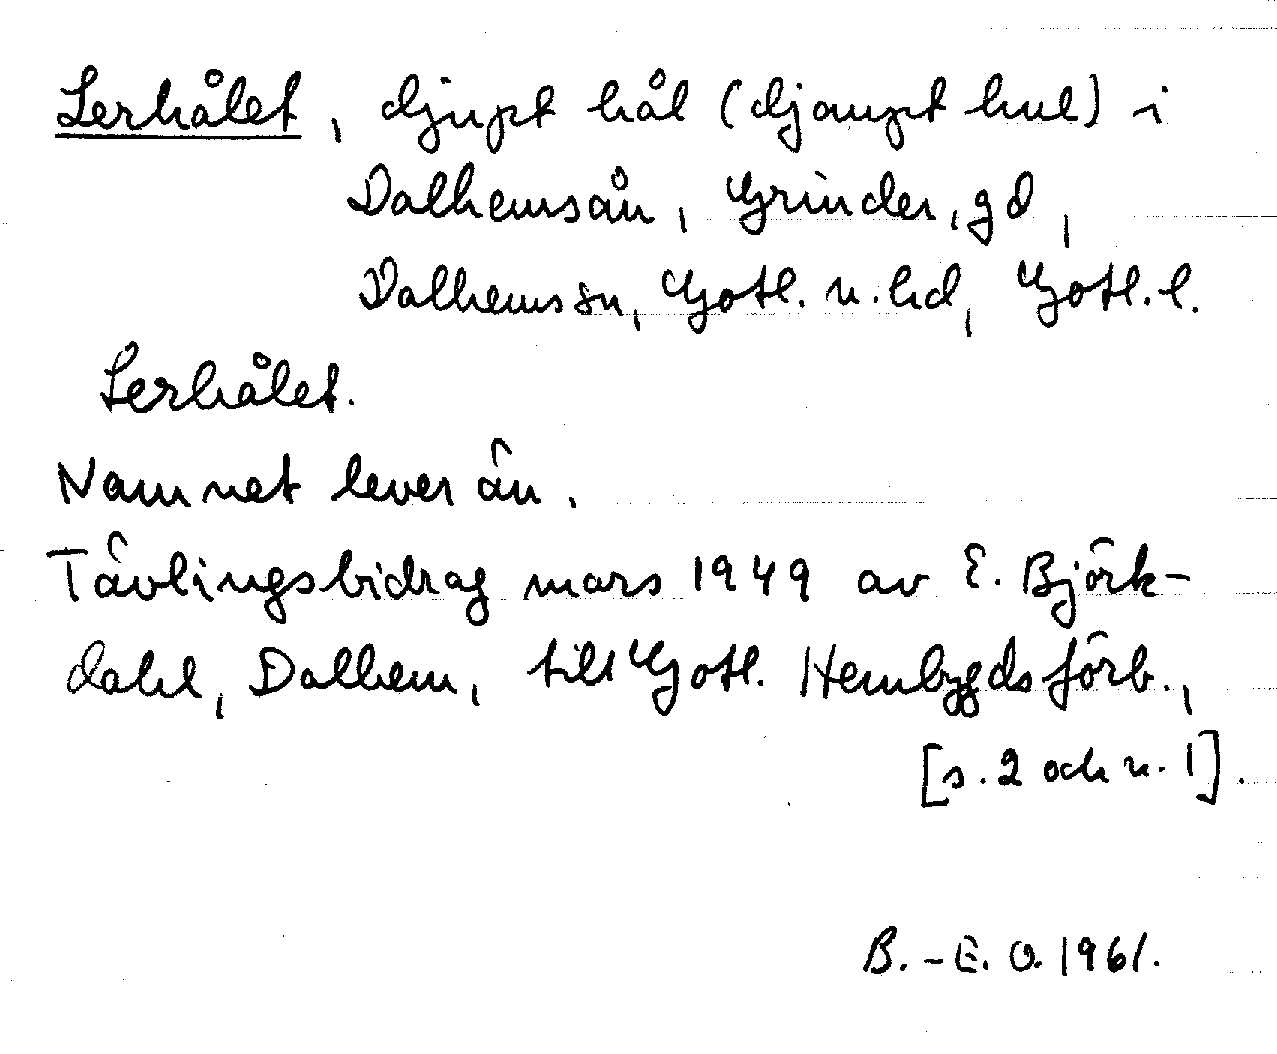 Lerhålet, djupt hål (djaupt hul) i
Dalhemsån, Grinder, gd,
Dalhems sn, Gotl. n. hd, Gotl. l.
Lerhålet.
Namnet lever än.
Tävlingsbidrag mars 1949 av E. Björk-
dahl, Dalhem, till Gotl. Hembygdsförb.,
[s. 2 och n. 1].
B.-E. O. 1961.